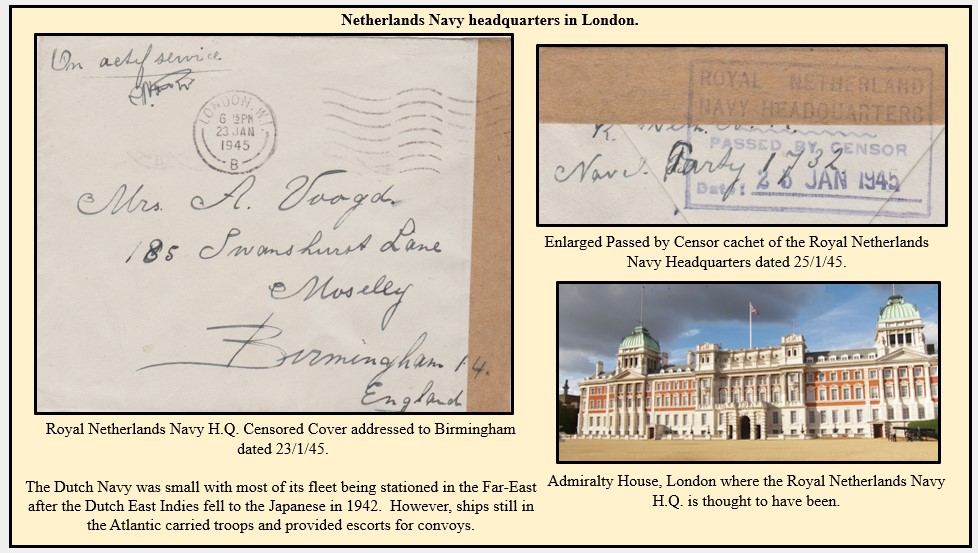 Netherlands Navy headquarters in London.
On actif service
LONDON.W.1.
6 15PM
23 JAN
1945
B
Mrs. A. Voogd.
185 Swanshurst Lane
Moselly
Birmingham 14.
England
Royal Netherlands Navy H.Q. Censored Cover addressed to Birmingham
dated 23/1/45.
The Dutch Navy was small with most of its fleet being stationed in the Far-East
after the Dutch East Indies fell to the Japanese in 1942. However, ships still in
the Atlantic carried troops and provided escorts for convoys.
ROYAL NETHERLAND
NAVY HEADQUARTERS
PASSED BY CENSOR
Naval Party 1732
Date: JAN 1945
Enlarged Passed by Censor cachet of the Royal Netherlands
Navy Headquarters dated 25/1/45.
Admiralty House, London where the Royal Netherlands Navy
H.Q. is thought to have been.